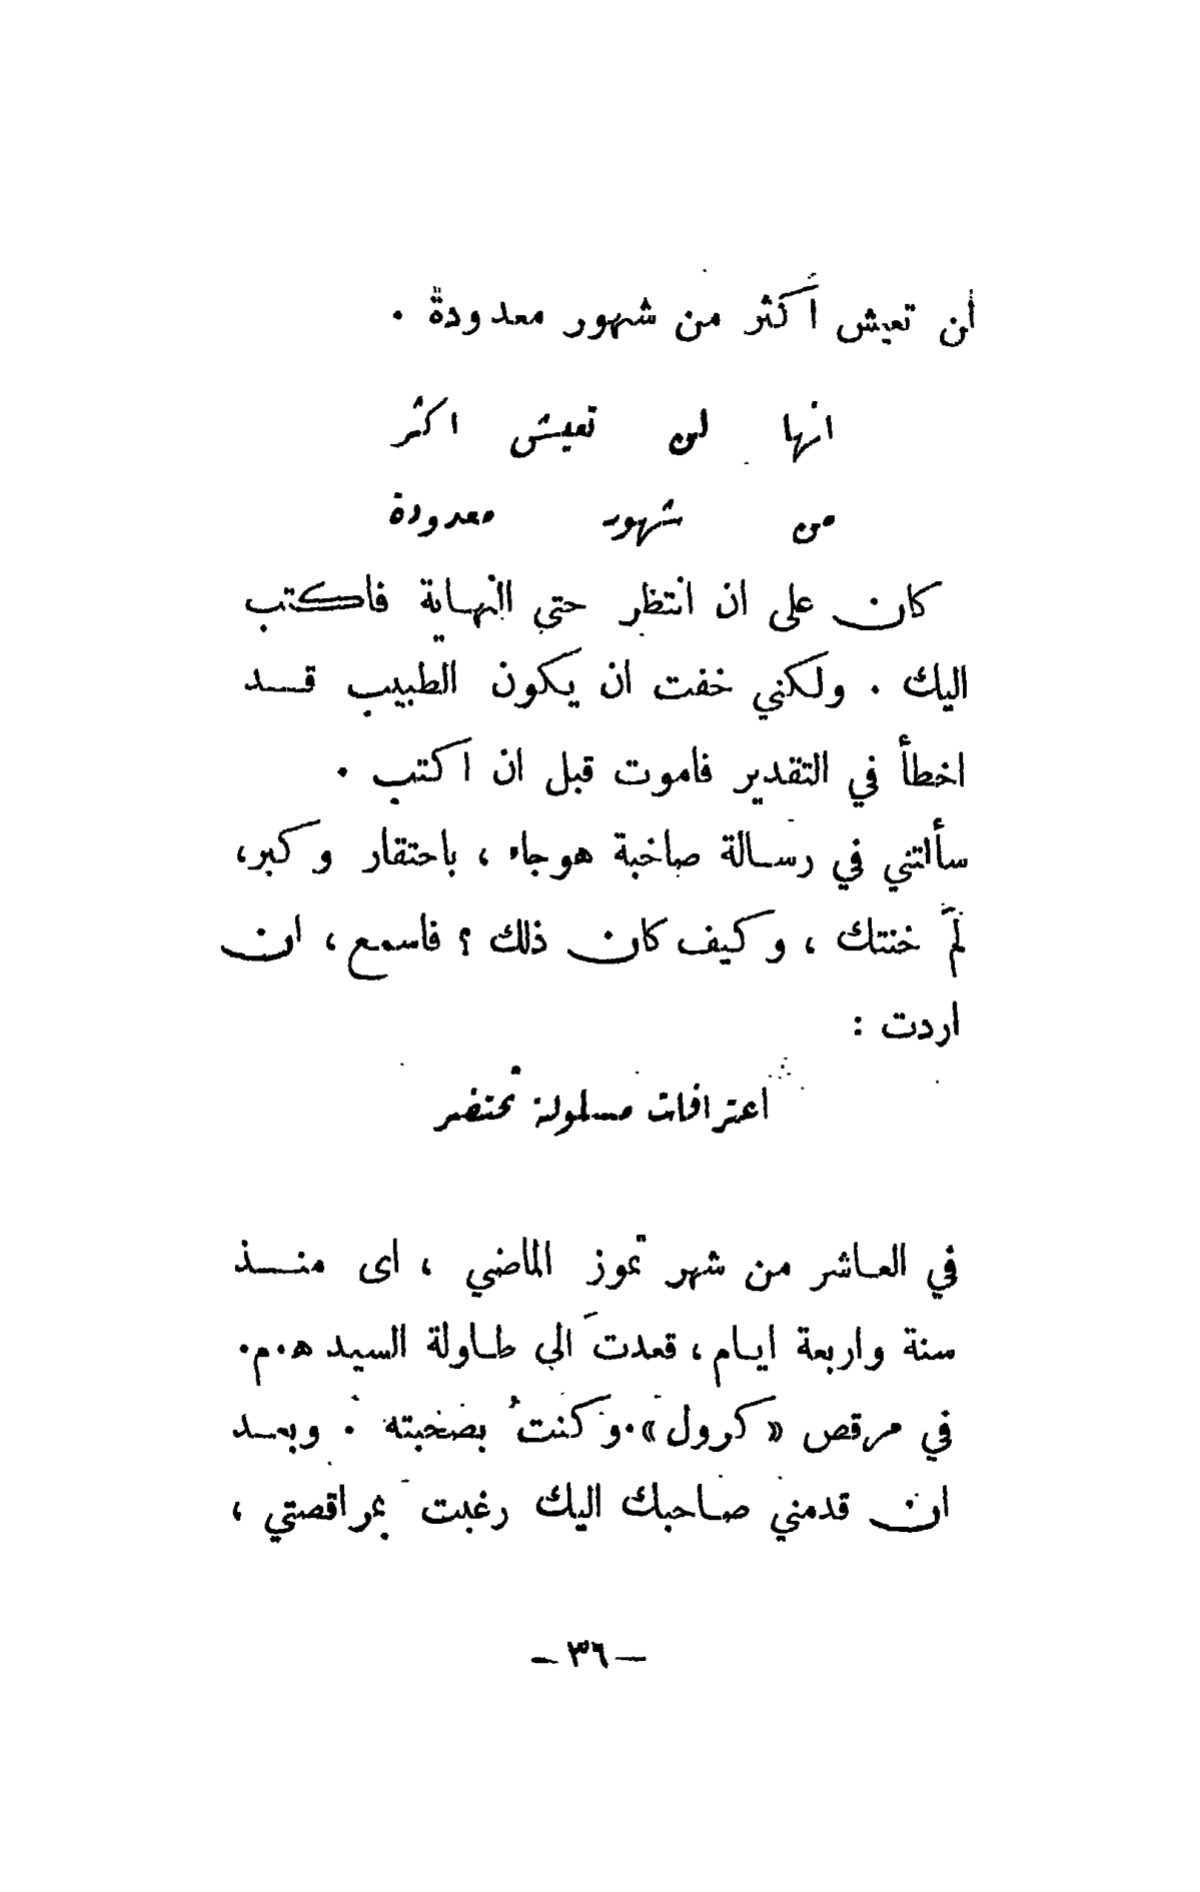 أن تعيش أكثر من شهور معدودة .
انها لن تعيش اكثر
من شهور معدودة
كان على ان انتظر حتى النهاية فاكتب
اليك . ولكني خفت ان يكون الطبيب قد
اخطأ في التقدير فاموت قبل ان اكتب .
سألتني في رسالة صاخبة هوجاء ، باحتقار وكبر،
لمَ خنتك ، وكيف كان ذلك ؟ فاسمع ، ان
اردت :
اعترافات مسلولة تحتضر
في العاشر من شهر تموز الماضي ، اى منذ
سنة واربعة ايام، قعدتَ الى طاولة السيد ه.م.
في مرقص « كرول». وكنتُ بصحبته . وبعد
ان قدمني صاحبك اليك رغبت بمراقصتي ،
– ٣٦ –